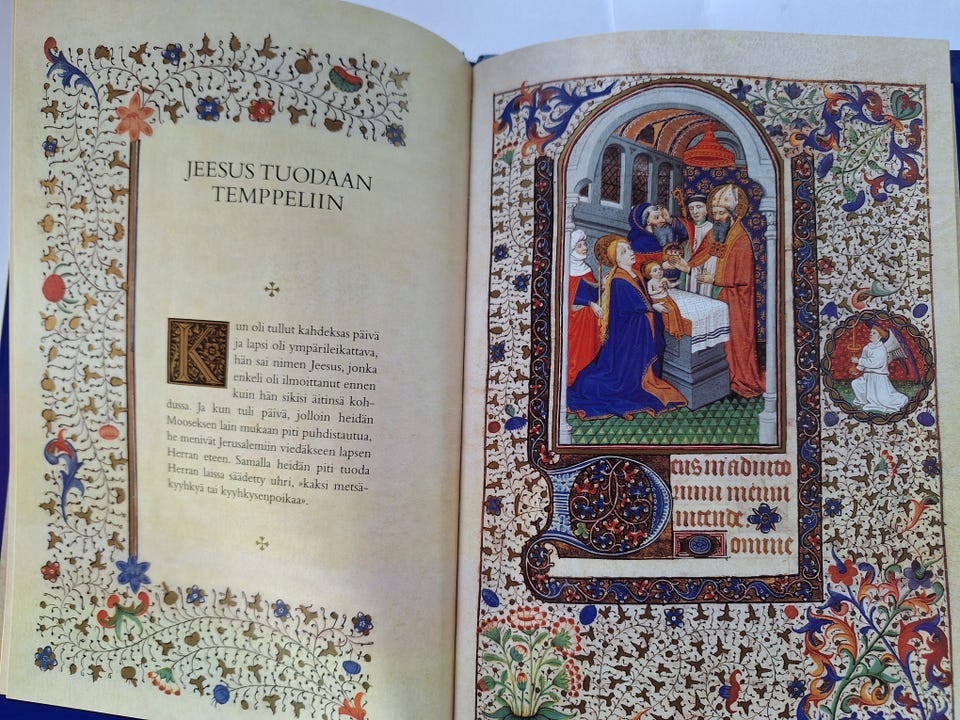 JEESUS TUODAAN
TEMPPELIIN
Kun oli tullut kahdeksas päivä
ja lapsi oli ympärileikattava,
hän sai nimen Jeesus, jonka
enkeli oli ilmoittanut ennen
kuin hän sikisi äitinsä koh-
dussa. Ja kun tuli päivä, jolloin heidän
Mooseksen lain mukaan piti puhdistautua,
he menivät Jerusalemiin viedäkseen lapsen
Herran eteen. Samalla heidän piti tuoda
Herran laissa säädetty uhri, »kaksi metsä-
kyyhkyä tai kyyhkysenpoikaa».
Deus in adiuto
rium meum
intende
Domine